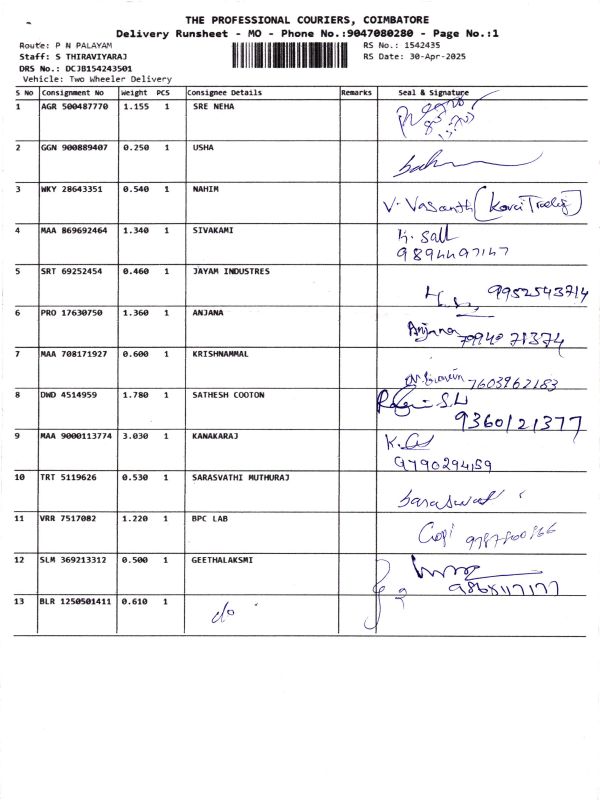 THE PROFESSIONAL COURIERS, COIMBATORE
Delivery Runsheet - MO - Phone No.:9047080280 - Page No.:1
Route: P N PALAYAM RS No.: 1542435
Staff: S THIRAVIYARAJ RS Date: 30-Apr-2025
DRS No.: DCJB154243501
Vehicle: Two Wheeler Delivery
S No Consignment No Weight PCS Consignee Details Remarks Seal & Signature
1 AGR 500487770 1.155 1 SRE NEHA
2 GGN 900889407 0.250 1 USHA
3 WKY 28643351 0.540 1 NAHIM
V. Vasanth
4 MAA 869692464 1.340 1 SIVAKAMI
9894497147
5 SRT 69252454 0.460 1 JAYAM INDUSTRES
9952543714
6 PRO 17630750 1.360 1 ANJANA
Anjana 7994071374
7 MAA 708171927 0.600 1 KRISHNAMMAL
7603962183
8 DWD 4514959 1.780 1 SATHESH COOTON
9360121377
9 MAA 9000113774 3.030 1 KANAKARAJ
9790294159
10 TRT 5119626 0.530 1 SARASVATHI MUTHURAJ
Saraswat
11 VRR 7517082 1.220 1 BPC LAB
Gopi
12 SLM 369213312 0.500 1 GEETHALAKSMI
13 BLR 1250501411 0.610 1 do